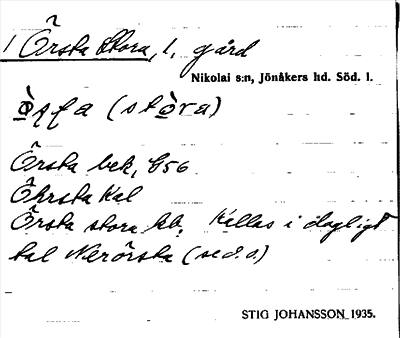 1 Örsta Stora, 1, gård
Nikolai s:n, Jönåkers hd. Söd. l.
(stòra)
Örsta bek, G56
Öhrsta Kal
Örsta stora kb. Kallas i dagligt
tal Nerörsta (se d.o.)
STIG JOHANSSON 1935.